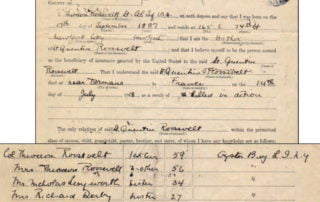 COUNTY OF
I, Theodore Roosevelt Lt. Col. Inf. U.S.A., on oath depose and say that I was born on the
13th day of September 1887 and reside at 165 E. 74th St
New York City New York, that I am the Brother
of Quentin Roosevelt and I believe myself to be the person named
as the beneficiary of insurance granted by the United States to the said Lt. Quentin
Roosevelt That I understand the said Quentin Roosevelt
at near France on the 14th
day of July 1918 as a result of killed in action
The only relation of said Quentin Roosevelt within the permitted
class of spouse, child, grandchild, parent, brother, and sister, of whom I have any knowledge are as follows:
Col Theodore Roosevelt father 59 Oyster Bay L.I. N.Y
Mrs. Theodore Roosevelt mother 56 "
Mrs. Nicholas Longworth sister 34 "
Mrs Richard Derby sister 27 "